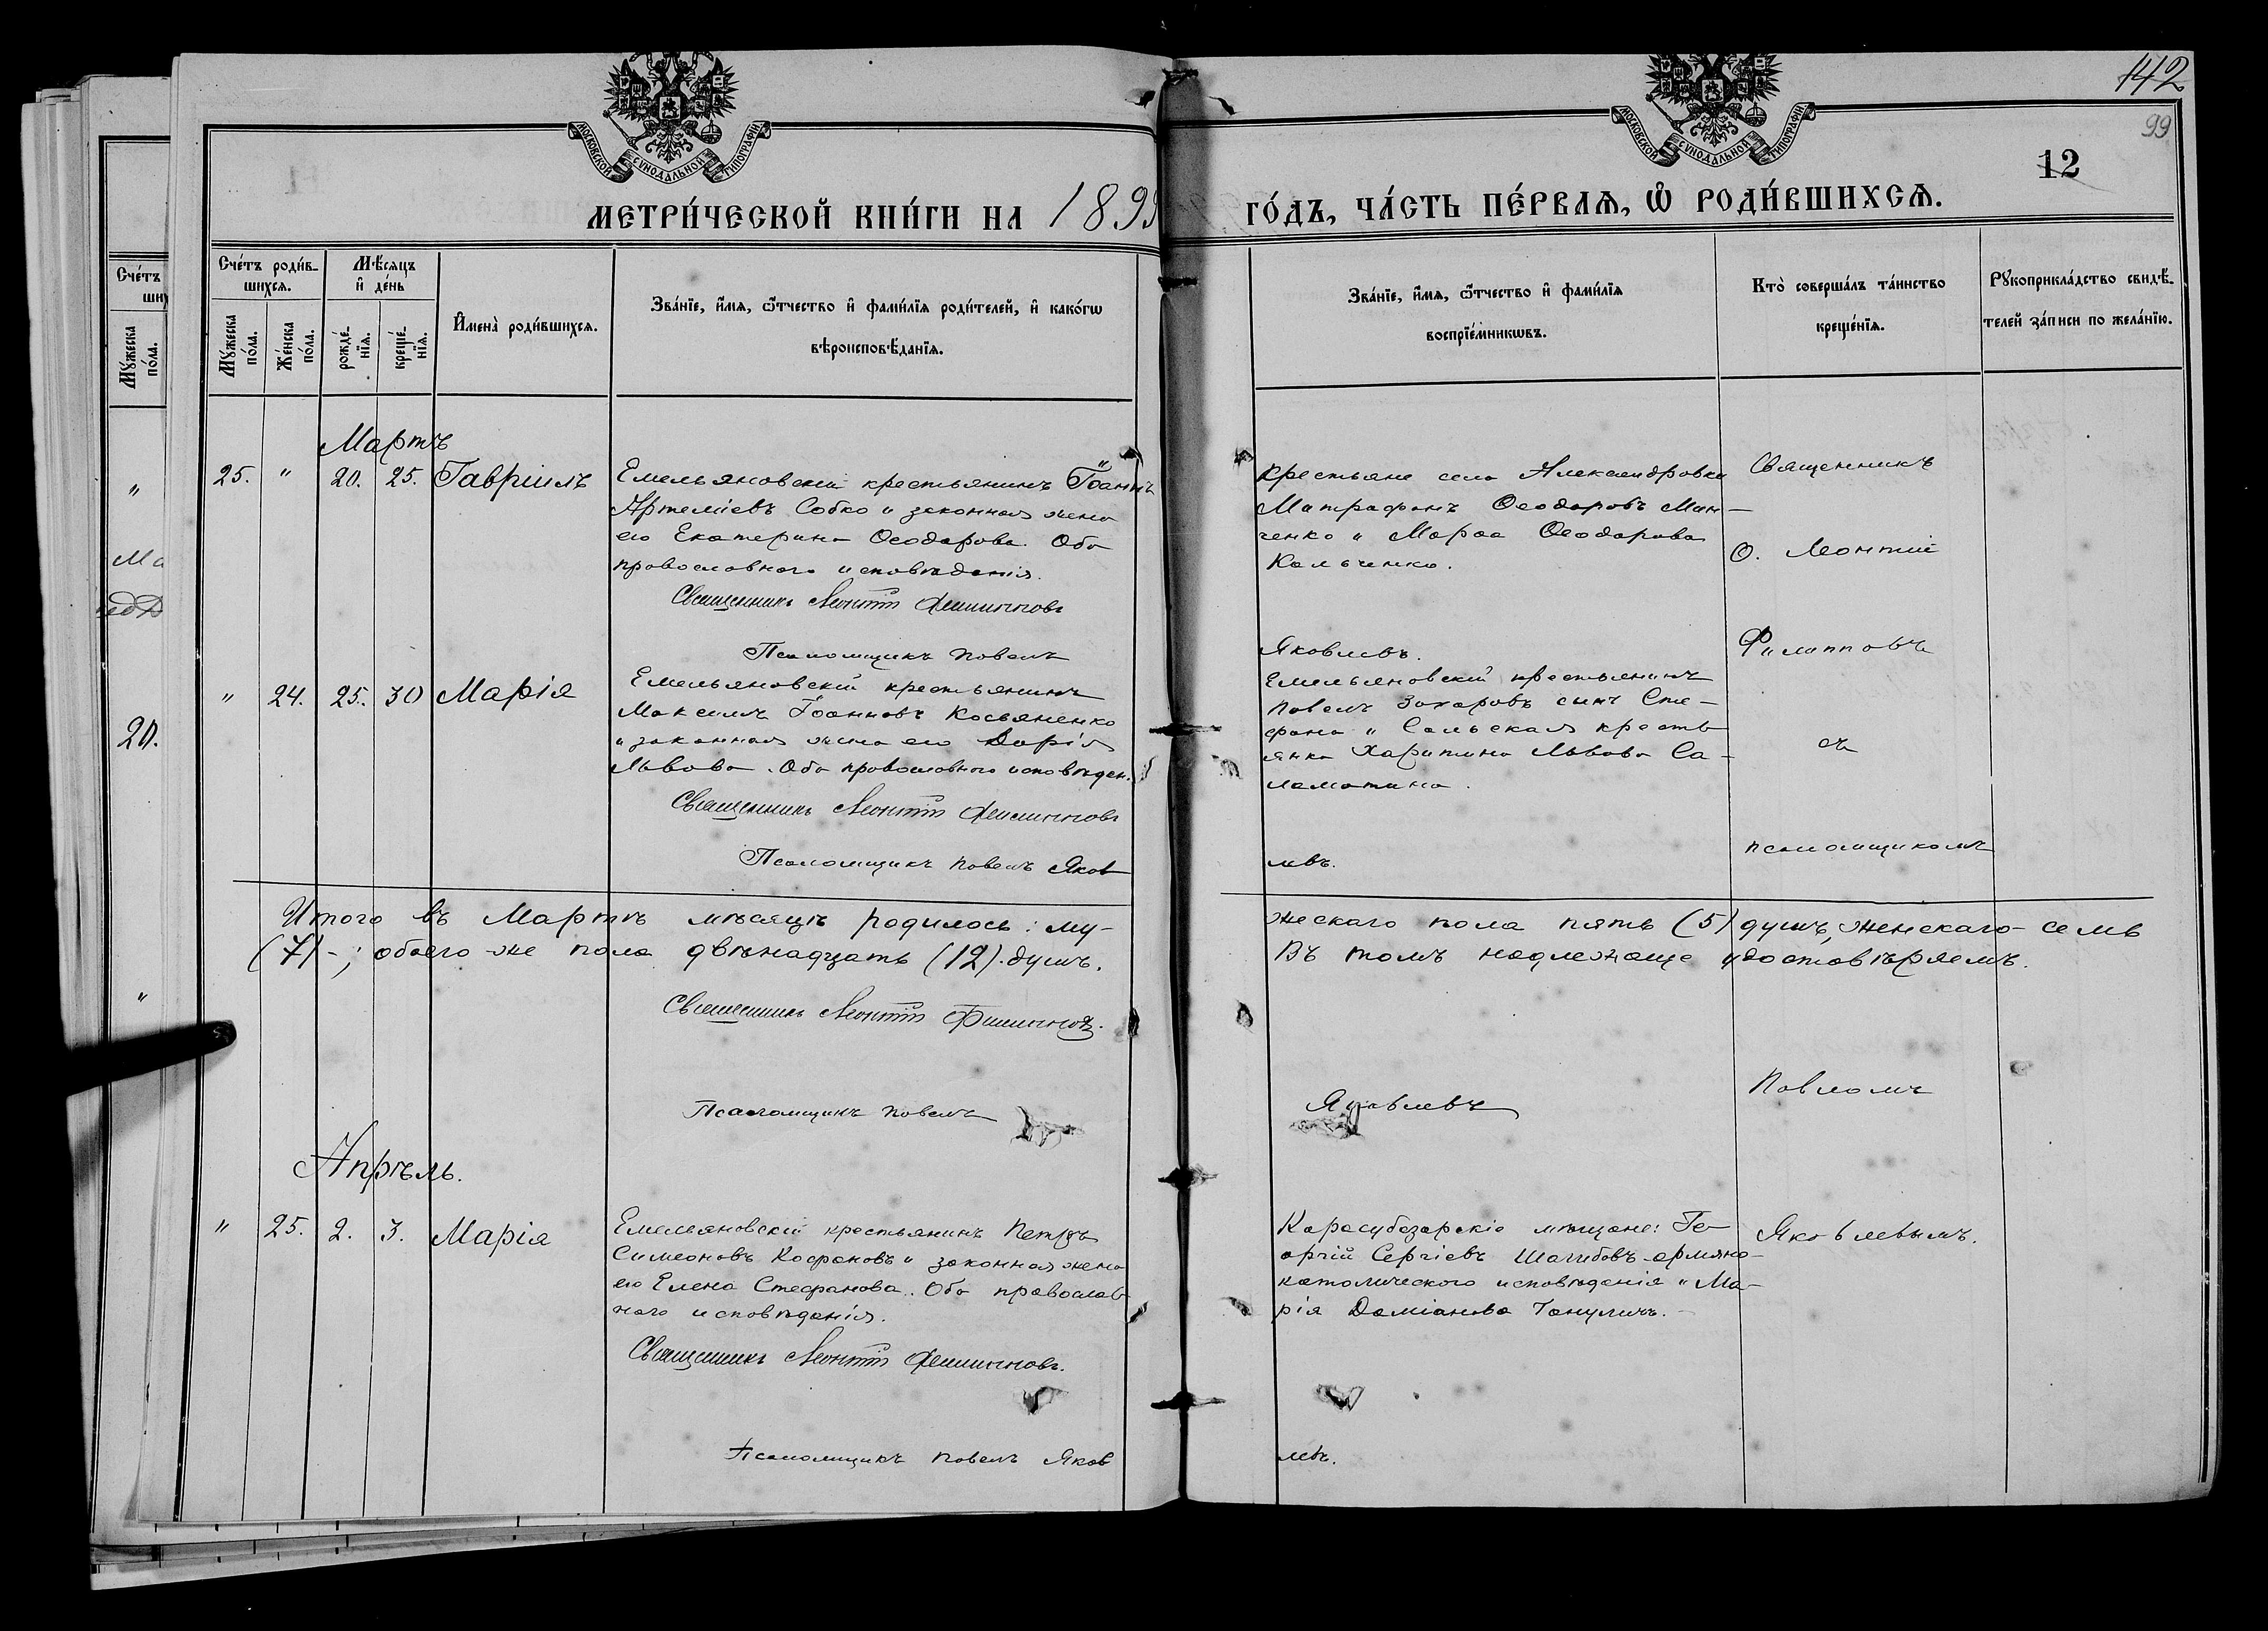 142
99
12
МОСКОВСКОЙ СѴНОДАЛЬНОЙ ТИПОГРАФІИ
МОСКОВСКОЙ СѴНОДАЛЬНОЙ ТИПОГРАФІИ
МЕТРИ́ЧЕСКОЙ КНИ́ГИ НА 189
ГО́ДЪ, ЧА́СТЬ ПЕ́РВАѦ, Ѽ РОДИ́ВШИХСѦ.
Сче́тъ роди́в-
шихсѧ.
Мѣ́сѧцъ
и҆ де́нь
Мꙋ́жеска по́ла.
Же́нска по́ла.
рожде́-
нїѧ.
креще́-
нїѧ.
И҆мена̀ роди́вшихсѧ.
Зва́нїе, и҆́мѧ, ѻ҆́тчество и҆ фами́лїѧ роди́телей, и҆ како́гѡ
вѣроисповѣ́данїѧ.
Зва́нїе, и҆́мѧ, ѻ҆́тчество и҆ фами́лїѧ
воспрїе́мникѡвъ.
Кто̀ соверша́лъ та́инство
креще́нїѧ.
Рꙋкоприкла́дство свидѣ́-
телей за́писи по жела́нїю.
Сче́тъ
ших
Мꙋ́жеска
по́ла.
"
Ма
20.
"
Мартъ
25. " 20. 25. Гавріилъ
Емельяновскій крестьянинъ Іоаннъ
Артеміевъ Собко и законная жена
его Екатерина Ѳеодорова. Оба
православнаго исповѣданія.
Священникъ Леонтій Филипповъ
Псаломщикъ Павелъ
Крестьяне села Александровки
Митрофанъ Ѳеодоровъ Мин-
ченко и Марѳа Ѳеодорова
Кальченко.
Яковлевъ.
Священникъ
О. Леонтій
Филипповъ
съ
псаломщикомъ
Павломъ
Яковлевымъ.
" 24. 25. 30 Марія
Емельяновскій крестьянинъ
Максимъ Іоанновъ Касьяненко
и законная жена его Дарія
Львова. Оба православнаго исповѣдан.
Священникъ Леонтій Филипповъ
Псаломщикъ Павелъ Яков
Емельяновскій крестьянинъ
Павелъ Захаровъ сынъ Сте-
фана и Сальская кресть-
янка Харитина Львова Са-
ламатина.
левъ.
Итого въ Мартѣ мѣсяцѣ родилось: му-
жескаго пола пять (5) душъ, женскаго - семь
(7) -; обоего же пола двѣнадцать (12). душъ.
Въ томъ надлежаще удостовѣряемъ.
Священникъ Леонтій Филипповъ.
Псаломщикъ Павелъ
Яковлевъ
Апрѣль.
" 25. 2. 3. Марія
Емельяновскій крестьянинъ Петръ
Симеоновъ Косфановъ и законная жена
его Елена Стефанова. Оба православ-
наго исповѣданія.
Священникъ Леонтій Филипповъ.
Псаломщикъ Павелъ Яков
Карасубазарскіе мѣщане: Ге-
оргій Сергіевъ Шагибовъ армяно-
католическаго исповѣданія и Ма-
рія Даміанова Танулизъ.
левъ.